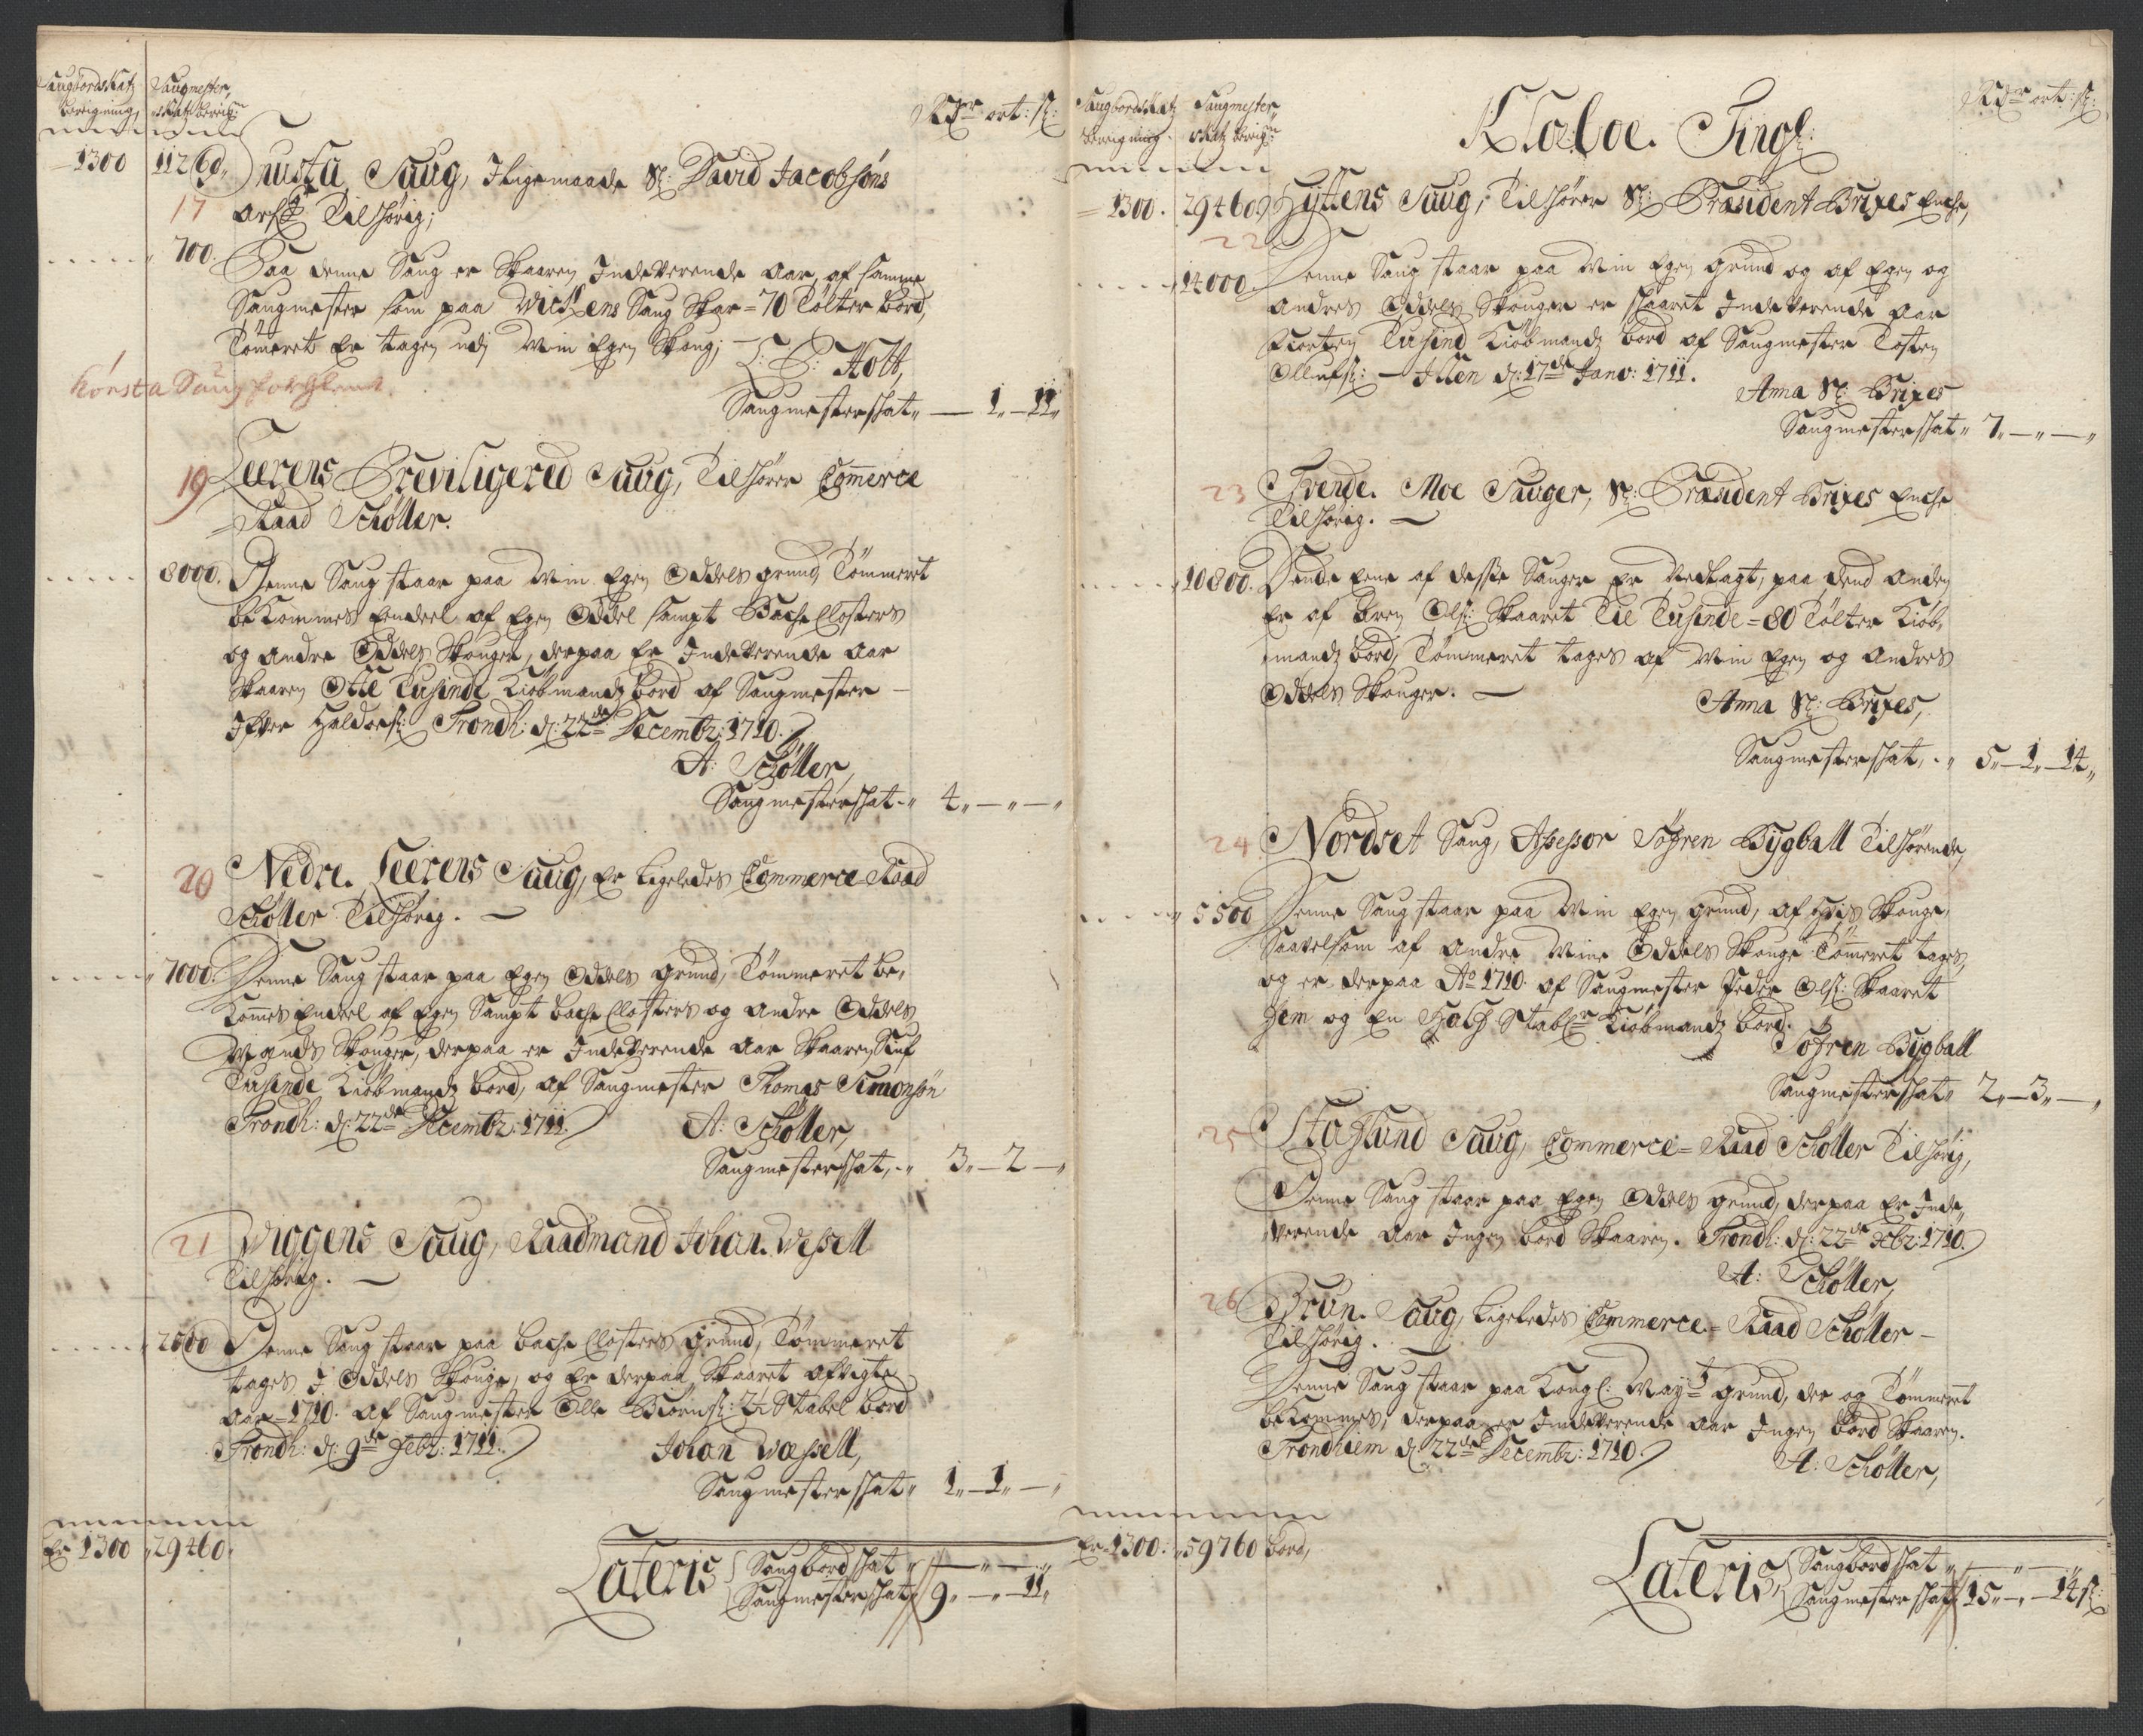 Saugbordskatz Saugmester
beregning skatz beregn:
Rdr ort: sk:
1300 11260
Frusta Saug, Iligemaade Sl: David Jacobsøns
17
arf: Tilhørig;
700. Paa denne Saug er Skaaren Indeverende aar, af samme
Saugmester som paa Wichens Saug Skar = 70 Tølter bord,
Tömeret Er tagen udj Min Egen Skoug;
Holt,
Saugmesterskat „ — 1 „ — 11 „
19 Leerens Previligered Saug, Tilhører Commerce
Raad Schøller.
8000. Denne Saug staar paa Min Egen Oddels grund, Tömmeret
bekommes Eendeel af Egen Oddel sampt Bache Closters
og andre Oddels Skouger, derpaa Er Indeverende aar
Skaaren Otte Tusinde Kiöbmandz bord af Saugmester
Ifver Haldorss: Trondh: d: 22de Decembr: 1710.
A: Schøller,
Saugmesterskat „ 4 „ — „ — „
20 Nedre Leerens Saug, Er Ligeledes Commerce Raad
Schøller Tilhörig.
7000. Denne Saug staar paa Egen Oddels grund, Tömmeret be,
Komes Endeel af Egen Sampt bache Closters og andre Oddels
Mands Skouger, derpaa er Indeverende aar Skaaren Siuf
Tusinde Kiöbmandz bord, af Saugmester Thomas Simonsøn
Trondh: d: 22de Decembr: 1711.
A: Schøller,
Saugmesterskat, „ 3 „ — 2 — „
21 Wiggens Saug, Raadmand Johan Wessell
Tilhørig.
2500 Denne Saug staar paa bache Closters grund, Tömmeret
tages I Oddels Skouge, og Er derpaa Skaaret afvigte
aar = 1710. af Saugmester Olle Biörns: 2½ Stabel bord
Trondh: d: 9de Febr: 1711.
Johan Wessell,
Saugmesterskat „ 1 „ — 1 „ — „
Er 1300 „ 29460.
Lateris Saugbordskat „ — „ — „
Saugmesterskat 9 „ — „ — 11 „
Saugbordskatz Saugmester
beregning skatz beregn:
Rdr ort: sk:
Klæboe Tingl:
1300. 29460 Hyttens Saug, Tilhører Sl: Præsident Brixes Enche,
22
14000. Denne Saug staar paa Min Egen grund og af Egen og
andres Oddels Skouger er skaaret Indeverende aar
Fiorten Tusind Kiöbmandz bord af Saugmester Tosten
Ollufs: — Illen d: 17de Janv: 1711.
Anna Sl: Brixes
Saugmesterskat „ 7 „ — „ — „
23 Tvende Moe Sauger, Sl: Præsident Brixes Enche
Tilhörig.
10800. Dend Eene af desse Sauger Er Nedlagt, paa dend anden
Er af Bren Ols: Skaaret Tie Tusinde = 80 Tölter Kiöb,
mandz bord, Tömmeret tages af Min Egen og andres
Oddels Skouger.
Anna Sl: Brixes,
Saugmesterskat, „ 5 „ — 1 „ — 14 „
24 Nordset Saug, Assessor Søfren Bygball Tilhørende,
5500 Denne Saug staar paa Min Egen grund, af Hvis Skouge,
Saavelsom af andre Mine Oddels Skouge Tömeret tages,
og er derpaa Ao 1710. af Saugmester Peder Ols: Skaaret
Fem og En Half Stabler Kiöbmandz bord.
Søfren Bygball
Saugmesterskat „ 2 „ — 3 „ — „
25 Stoflund Saug, Commerce = Raad Schøller Tilhørig,
Denne Saug staar paa Egen Oddels grund, derpaa Er Inde,
verende aar Ingen bord Skaaren. Trondh: d: 22de Xbr: 1710.
A: Schøller,
26 Brun. Saug, Ligeledes Commerce = Raad Schøller
Tilhörig.
Denne Saug staar paa Kongl: Mayts grund, der og Tömmeret
bekommes, derpaa er Indeverende aar Ingen bord Skaaren.
Trondhiem d: 22de Decembr: 1710.
A: Schøller,
Er 1300. „ 59760 bord,
Lateris, Saugbordskat „ — „ — „
Saugmesterskat 15 „ — „ — 14 sk: